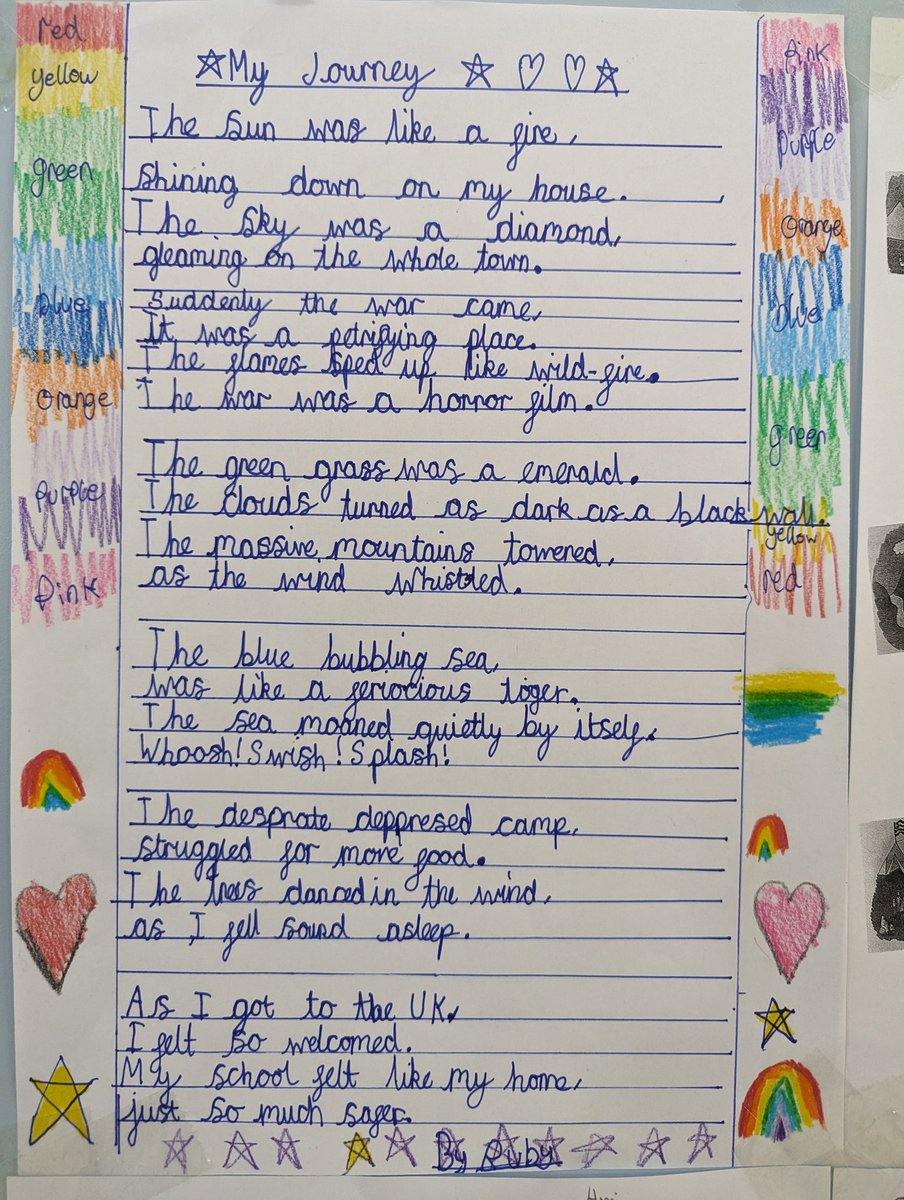 My Journey
The Sun was like a fire,
shining down on my house.
The sky was a diamond,
gleaming on the whole town.
Suddenly the war came,
It was a petrifying place.
The flames sped up like wild-fire.
The war was a horror film.
The green grass was a emerald.
The clouds turned as dark as a black wall.
The massive mountains towered,
as the wind whistled.
The blue bubbling sea,
was like a feriocious tiger.
The sea moaned quietly by itself.
Whoosh! Swish! Splash!
The desprate deppresed camp,
struggled for more food.
The trees danced in the wind,
as I fell sound asleep.
As I got to the UK,
I felt so welcomed.
My school felt like my home,
just so much safer.
By Ruby
red
yellow
green
blue
Orange
purple
pink
pink
purple
Orange
blue
green
yellow
red